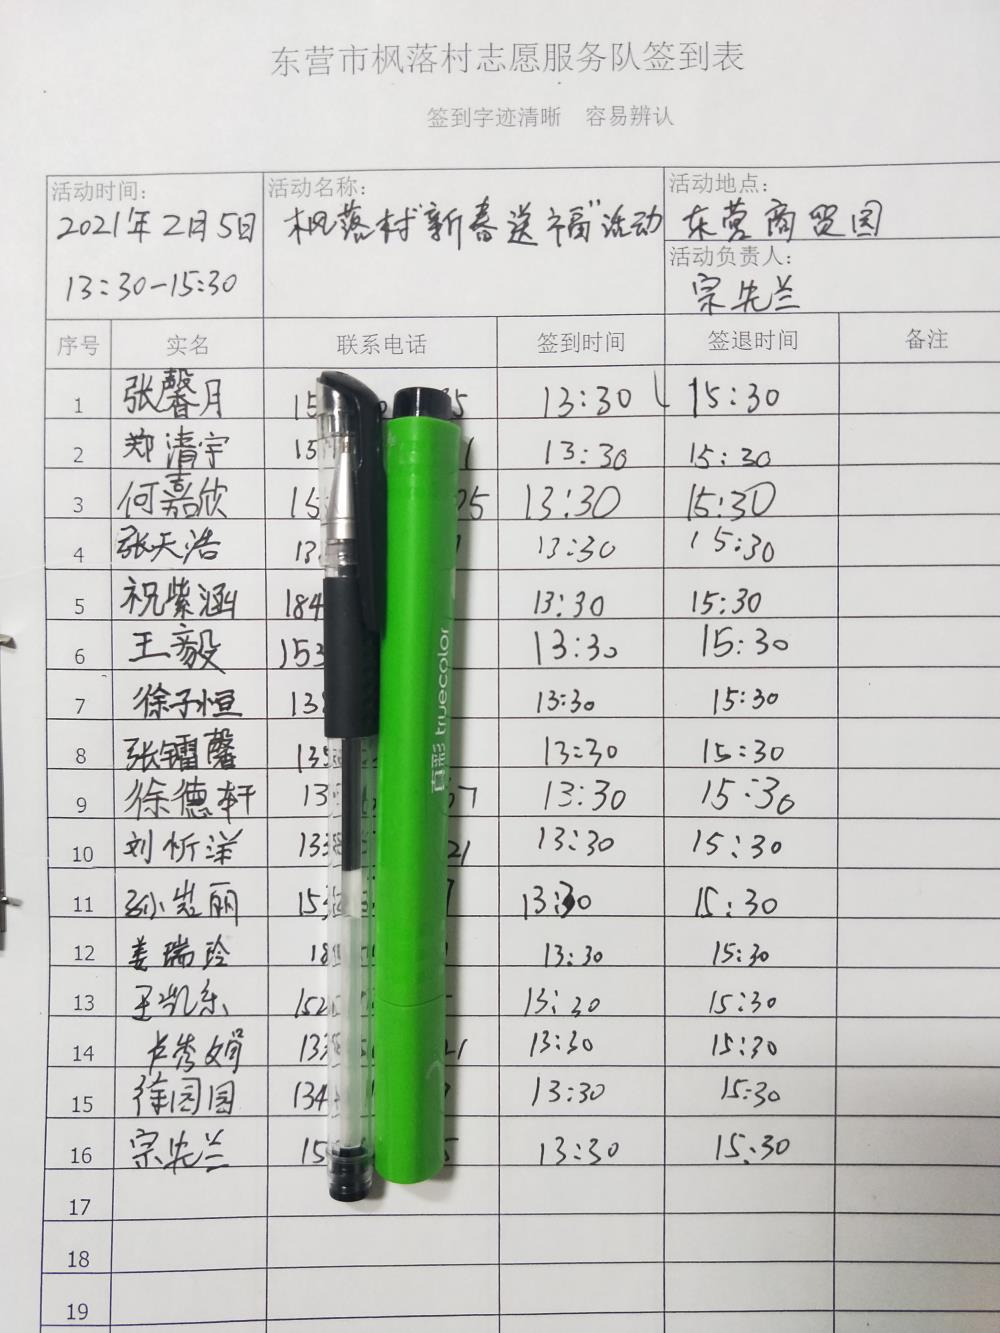 东营市枫落村志愿服务队签到表
签到字迹清晰 容易辨认
活动时间: 活动名称: 活动地点:
2021年2月5日 枫落村"新春送福"活动 东营商贸园
13:30-15:30 活动负责人:
宗先兰
序号 实名 联系电话 签到时间 签退时间 备注
1 张馨月 13:30 15:30
2 郑清宇 13:30 15:30
3 何嘉欣 13:30 15:30
4 张天浩 13:30 15:30
5 祝紫涵 184 13:30 15:30
6 王毅 153 13:30 15:30
7 徐子恒 13:30 15:30
8 张镭馨 135 13:30 15:30
9 徐德轩 13:30 15:30
10 刘忻洋 133 21 13:30 15:30
11 孙岩丽 13:30 15:30
12 姜瑞玲 13:30 15:30
13 王凯乐 152 13:30 15:30
14 卢秀娟 133 21 13:30 15:30
15 徐园园 134 13:30 15:30
16 宗先兰 13:30 15:30
17
18
19
真彩 truecolor